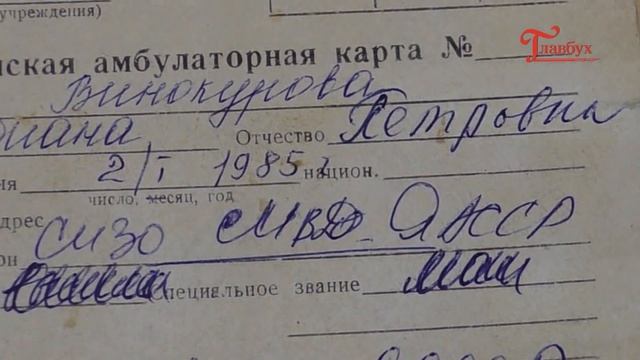 учреждения)
Главбух
ская амбулаторная карта №
Винокурова
Отчество Петровна
2/I 1985 г национ.
число, месяц, год
дрес СИЗО МВД ЯАССР
он
Специальное звание